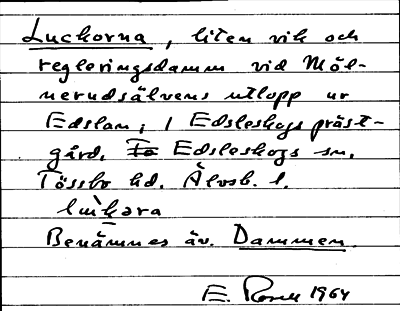 Luckorna, liten vik och
regleringsdamm vid Möl-
nerudsälvens utlopp ur
Edslan; i Edsleskogs präst-
gård. Edsleskogs sn.
Tössbo hd. Älvsb. l.
Benämnes äv. Dammen.
E. 1964